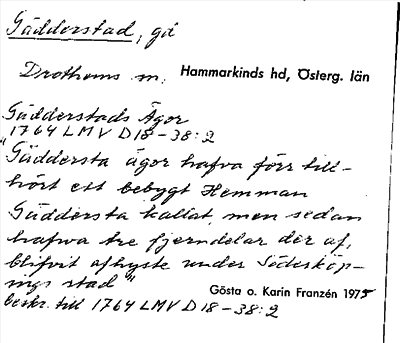 Gädderstad, gd
Drothems sn, Hammarkinds hd, Österg. län
Gädderstads Ägor
1764 LMV D18-38:2
"Gäddersta ägor hafva förr till-
hört ett bebygt Hemman
Gäddersta kallat, men sedan
hafwa tre fjerndelar der af,
blifvit afhyste under Söderköp-
ings stad"
Gösta o. Karin Franzén 1975
beskr. till 1764 LMV D18-38:2